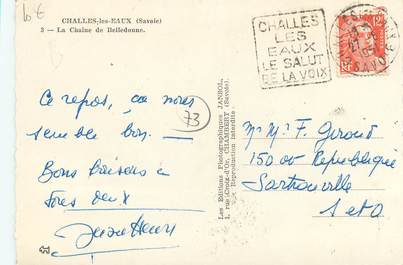 10 €
CHALLES-les-EAUX (Savoie)
3 — La Chaîne de Belledonne.
CHALLES
LES
EAUX
LE SALUT
DE LA VOIX
Ce repos, ça nous
semble bon. —
Bons baisers à
tous deux
73
Les Editions Photographiques JANSOL,
1, rue Croix-d'Or, CHAMBERY (Savoie).
Reproduction interdite
Mr Mme F. Giroud
150 République
Sartrouville
S et O